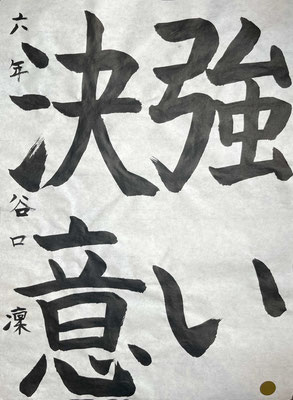 強い
決意
六年 谷口 凜